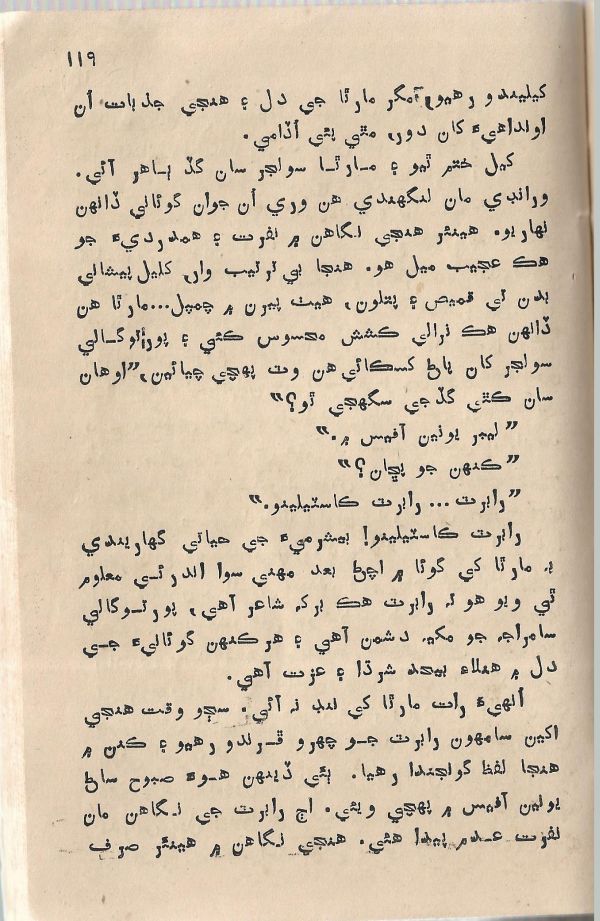 ١١٩
کيليندو رهيو، مگر مارٿا جي دل ۽ هنجي جذبات اُن
اونداهيءَ کان دور، مٿي پئي اُڏامي.
کيل ختم ٿيو ۽ مارٿا سولجر سان گڏ ٻاهر آئي.
ورانڊي مان لنگهندي هن وري اُن جوان گوئاني ڏانهن
نهاريو. هينئر هنجي نگاهن ۾ نفرت ۽ همدرديءَ جو
هڪ عجيب ميل هو. هنجا بي ترتيب وار، کليل پيشاني
بدن تي قميص ۽ پتلون، هيٺ پيرن ۾ چمپل...مارٿا هن
ڏانهن هڪ نرالي ڪشش محسوس ڪئي ۽ پورٽوگالي
سولجر کان پاڻ کسڪائي هن وٽ پهچي چيائين، ”اوهان
سان ڪٿي گڏجي سگهجي ٿو؟“
”ليبر يونين آفيس ۾.“
”ڪنهن جو پڇان؟“
”رابرٽ... رابرٽ ڪاسٽيلينو.“
رابرٽ ڪاسٽيلينو! بيشرميءَ جي حياتي گهاريندي
به مارٿا کي گوئا ۾ اچڻ بعد مهني سوا اندر ئي معلوم
ٿي ويو هو ته رابرٽ هڪ برک شاعر آهي، پورٽوگالي
سامراج جو مکيه دشمن آهي ۽ هر ڪنهن گوئانيءَ جي
دل ۾ هنلاءِ بيحد شرڌا ۽ عزت آهي.
اُنهيءَ رات مارٿا کي ننڊ نه آئي. سڄو وقت هنجي
اکين سامهون رابرٽ جو چهرو ڦرندو رهيو ۽ ڪنن ۾
هنجا لفظ گونجندا رهيا. ٻئي ڏينهن هوءَ صبوح ساڻ
يونين آفيس ۾ پهچي ويئي. اڄ رابرٽ جي نگاهن مان
نفرت عدم پيدا هئي. هنجي نگاهن ۾ هينئر صرف